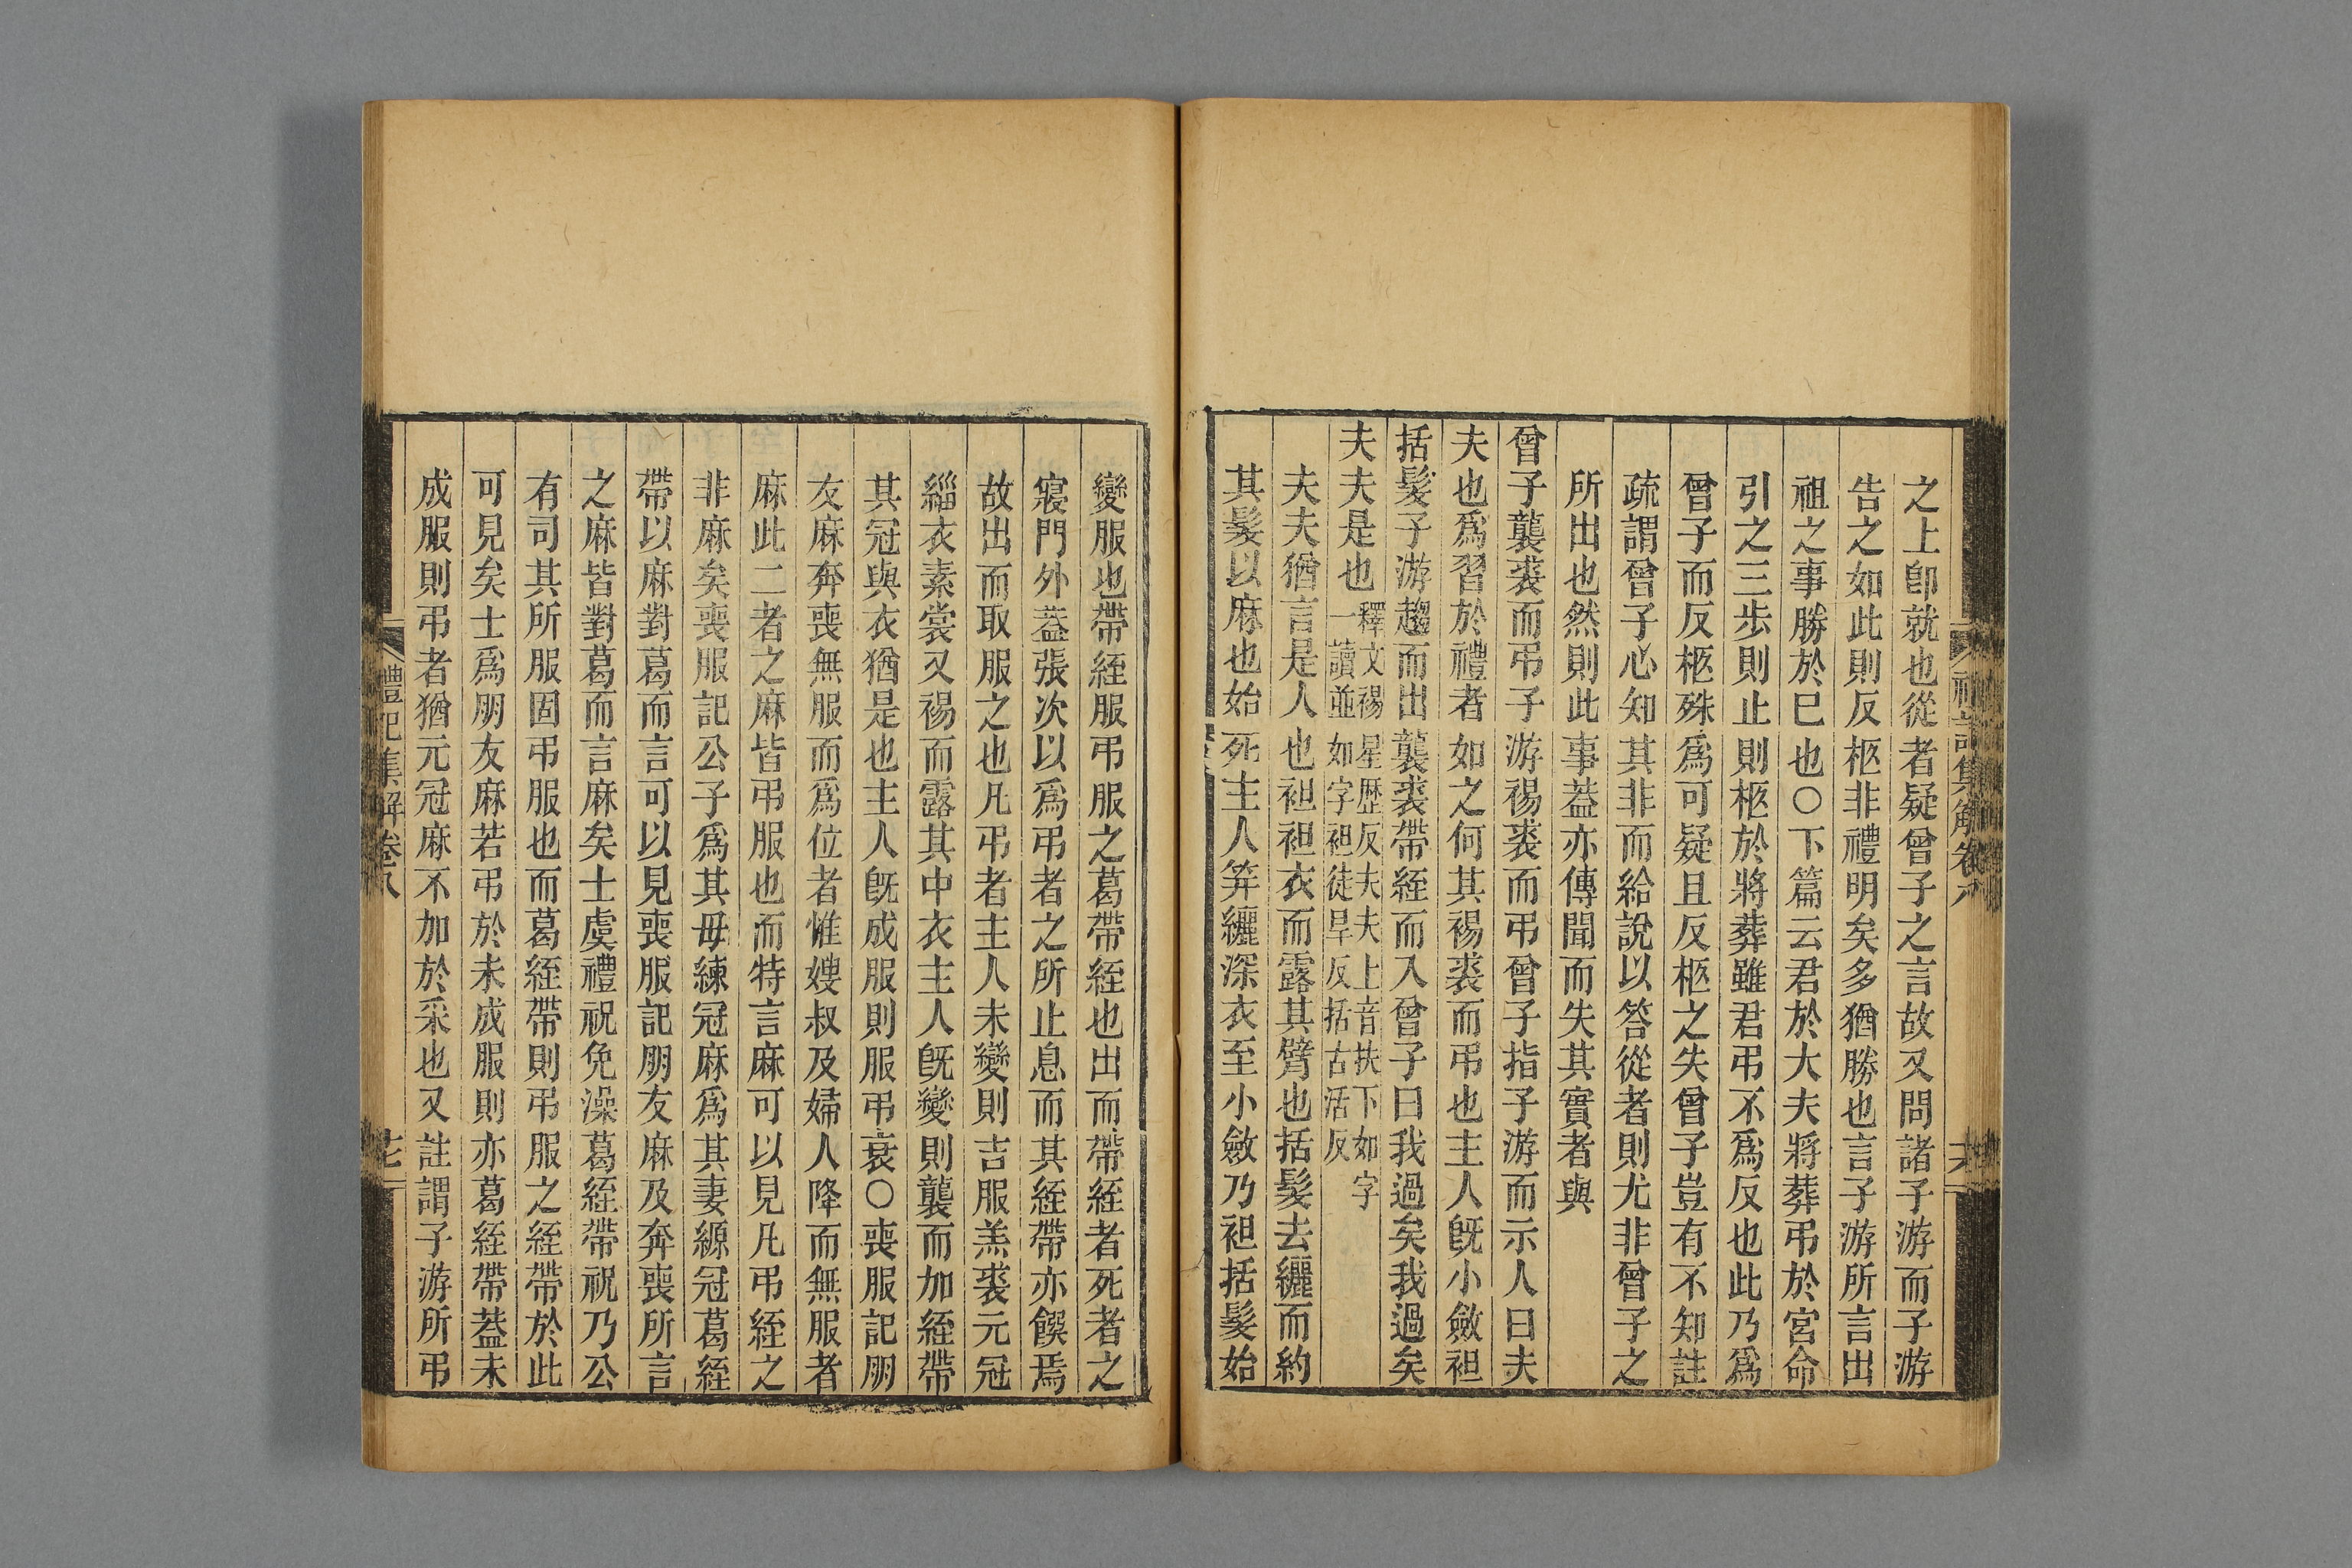 之上卽就也從者疑曾子之言故又問諸子游而子游
告之如此則反柩非禮明矣多猶勝也言子游所言出
祖之事勝於巳也○下篇云君於大夫將葬弔於宮命
引之三步則止則柩於將葬雖君弔不爲反也此乃爲
曾子而反柩殊爲可疑且反柩之失曾子豈有不知註
疏謂曾子心知其非而給說以答從者則尤非曾子之
所出也然則此事葢亦傳聞而失其實者與
曾子襲裘而弔子游裼裘而弔曾子指子游而示人曰夫
夫也爲習於禮者如之何其裼裘而弔也主人旣小斂袒
括髮子游趨而出襲裘帶絰而入曾子曰我過矣我過矣
夫夫是也釋文裼星歷反夫夫上音扶下如字
一讀並如字袒徒旱反括古活反
夫夫猶言是人也袒袒衣而露其臂也括髮去纚而約
其髮以麻也始死主人笄纚深衣至小斂乃袒括髮始
變服也帶絰服弔服之葛帶絰也出而帶絰者死者之
寢門外葢張次以爲弔者之所止息而其絰帶亦饌焉
故出而取服之也凡弔者主人未變則吉服羔裘元冠
緇衣素裳又裼而露其中衣主人旣變則襲而加絰帶
其冠與衣猶是也主人旣成服則服弔衰○喪服記朋
友麻奔喪無服而爲位者惟嫂叔及婦人降而無服者
麻此二者之麻皆弔服也而特言麻可以見凡弔絰之
非麻矣喪服記公子爲其母練冠麻爲其妻縓冠葛絰
帶以麻對葛而言可以見喪服記朋友麻及奔喪所言
之麻皆對葛而言麻矣士虞禮祝免澡葛絰帶祝乃公
有司其所服固弔服也而葛絰帶則弔服之絰帶於此
可見矣士爲朋友麻若弔於未成服則亦葛絰帶葢未
成服則弔者猶元冠麻不加於采也又註謂子游所弔
禮記集解卷八